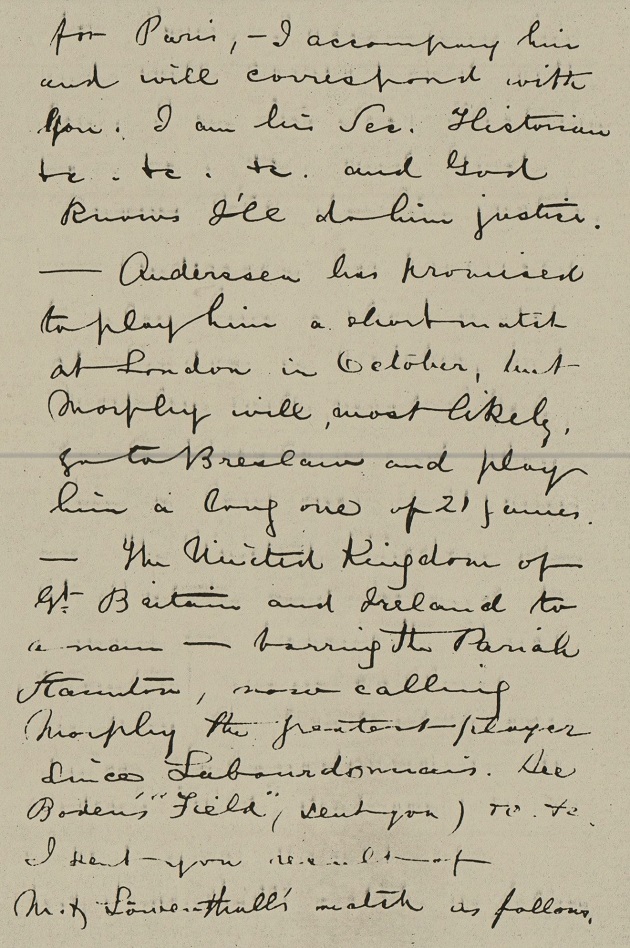 for Paris, — I accompany him
and will correspond with
you. I am his Sec. Historian
&c. &c. &c. and God
Knows I'll do him justice.
— Anderssen has promised
to play him a short match
at London in October, but
Morphy will, most likely,
go to Breslau and play
him a long one of 21 games.
— The United Kingdom of
Gt. Britain and Ireland to
a man — barring the Pariah
Staunton, now calling
Morphy the greatest player
since Labourdonnais. See
Boden's "Field", sent you) &c. &c.
I sent you result of
M. & Löwenthall's match as follows.